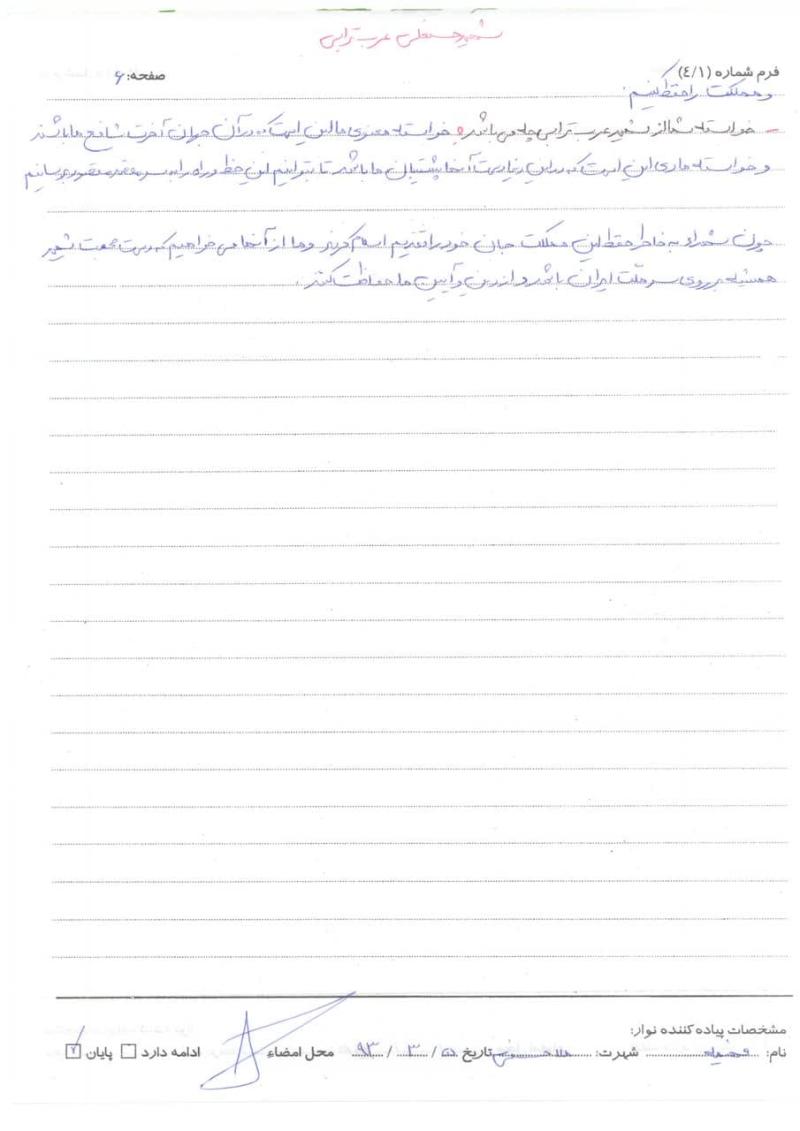 شهید حسنعلی عرب ترابی
فرم شماره (٤/١)
صفحه: ۶
و مملکت را حفظ کنیم.
- خواسته شما از شهید عرب ترابی چه می باشد؟ خواسته معنوی ما این است که در آن جهان آخرت شافع ما باشند
و خواسته مادی این است که در این دنیا دست آنها پشتیبان ما باشد تا بتوانیم این خط و راه را به سر مقصد مقصود برسانیم
چون شهداء به خاطر حفظ این مملکت جان خود را تقدیم اسلام کردند و ما از آنها می خواهیم که دست محبت شهید
همیشه بر روی سر ملّت ایران باشد و از دین و آیین ما حفاظت کنند.
مشخصات پیاده کننده نوار:
نام: فضیله شهرت: ملاحسنی تاریخ / ۳ / ۹۳ محل امضاء ادامه دارد پایان